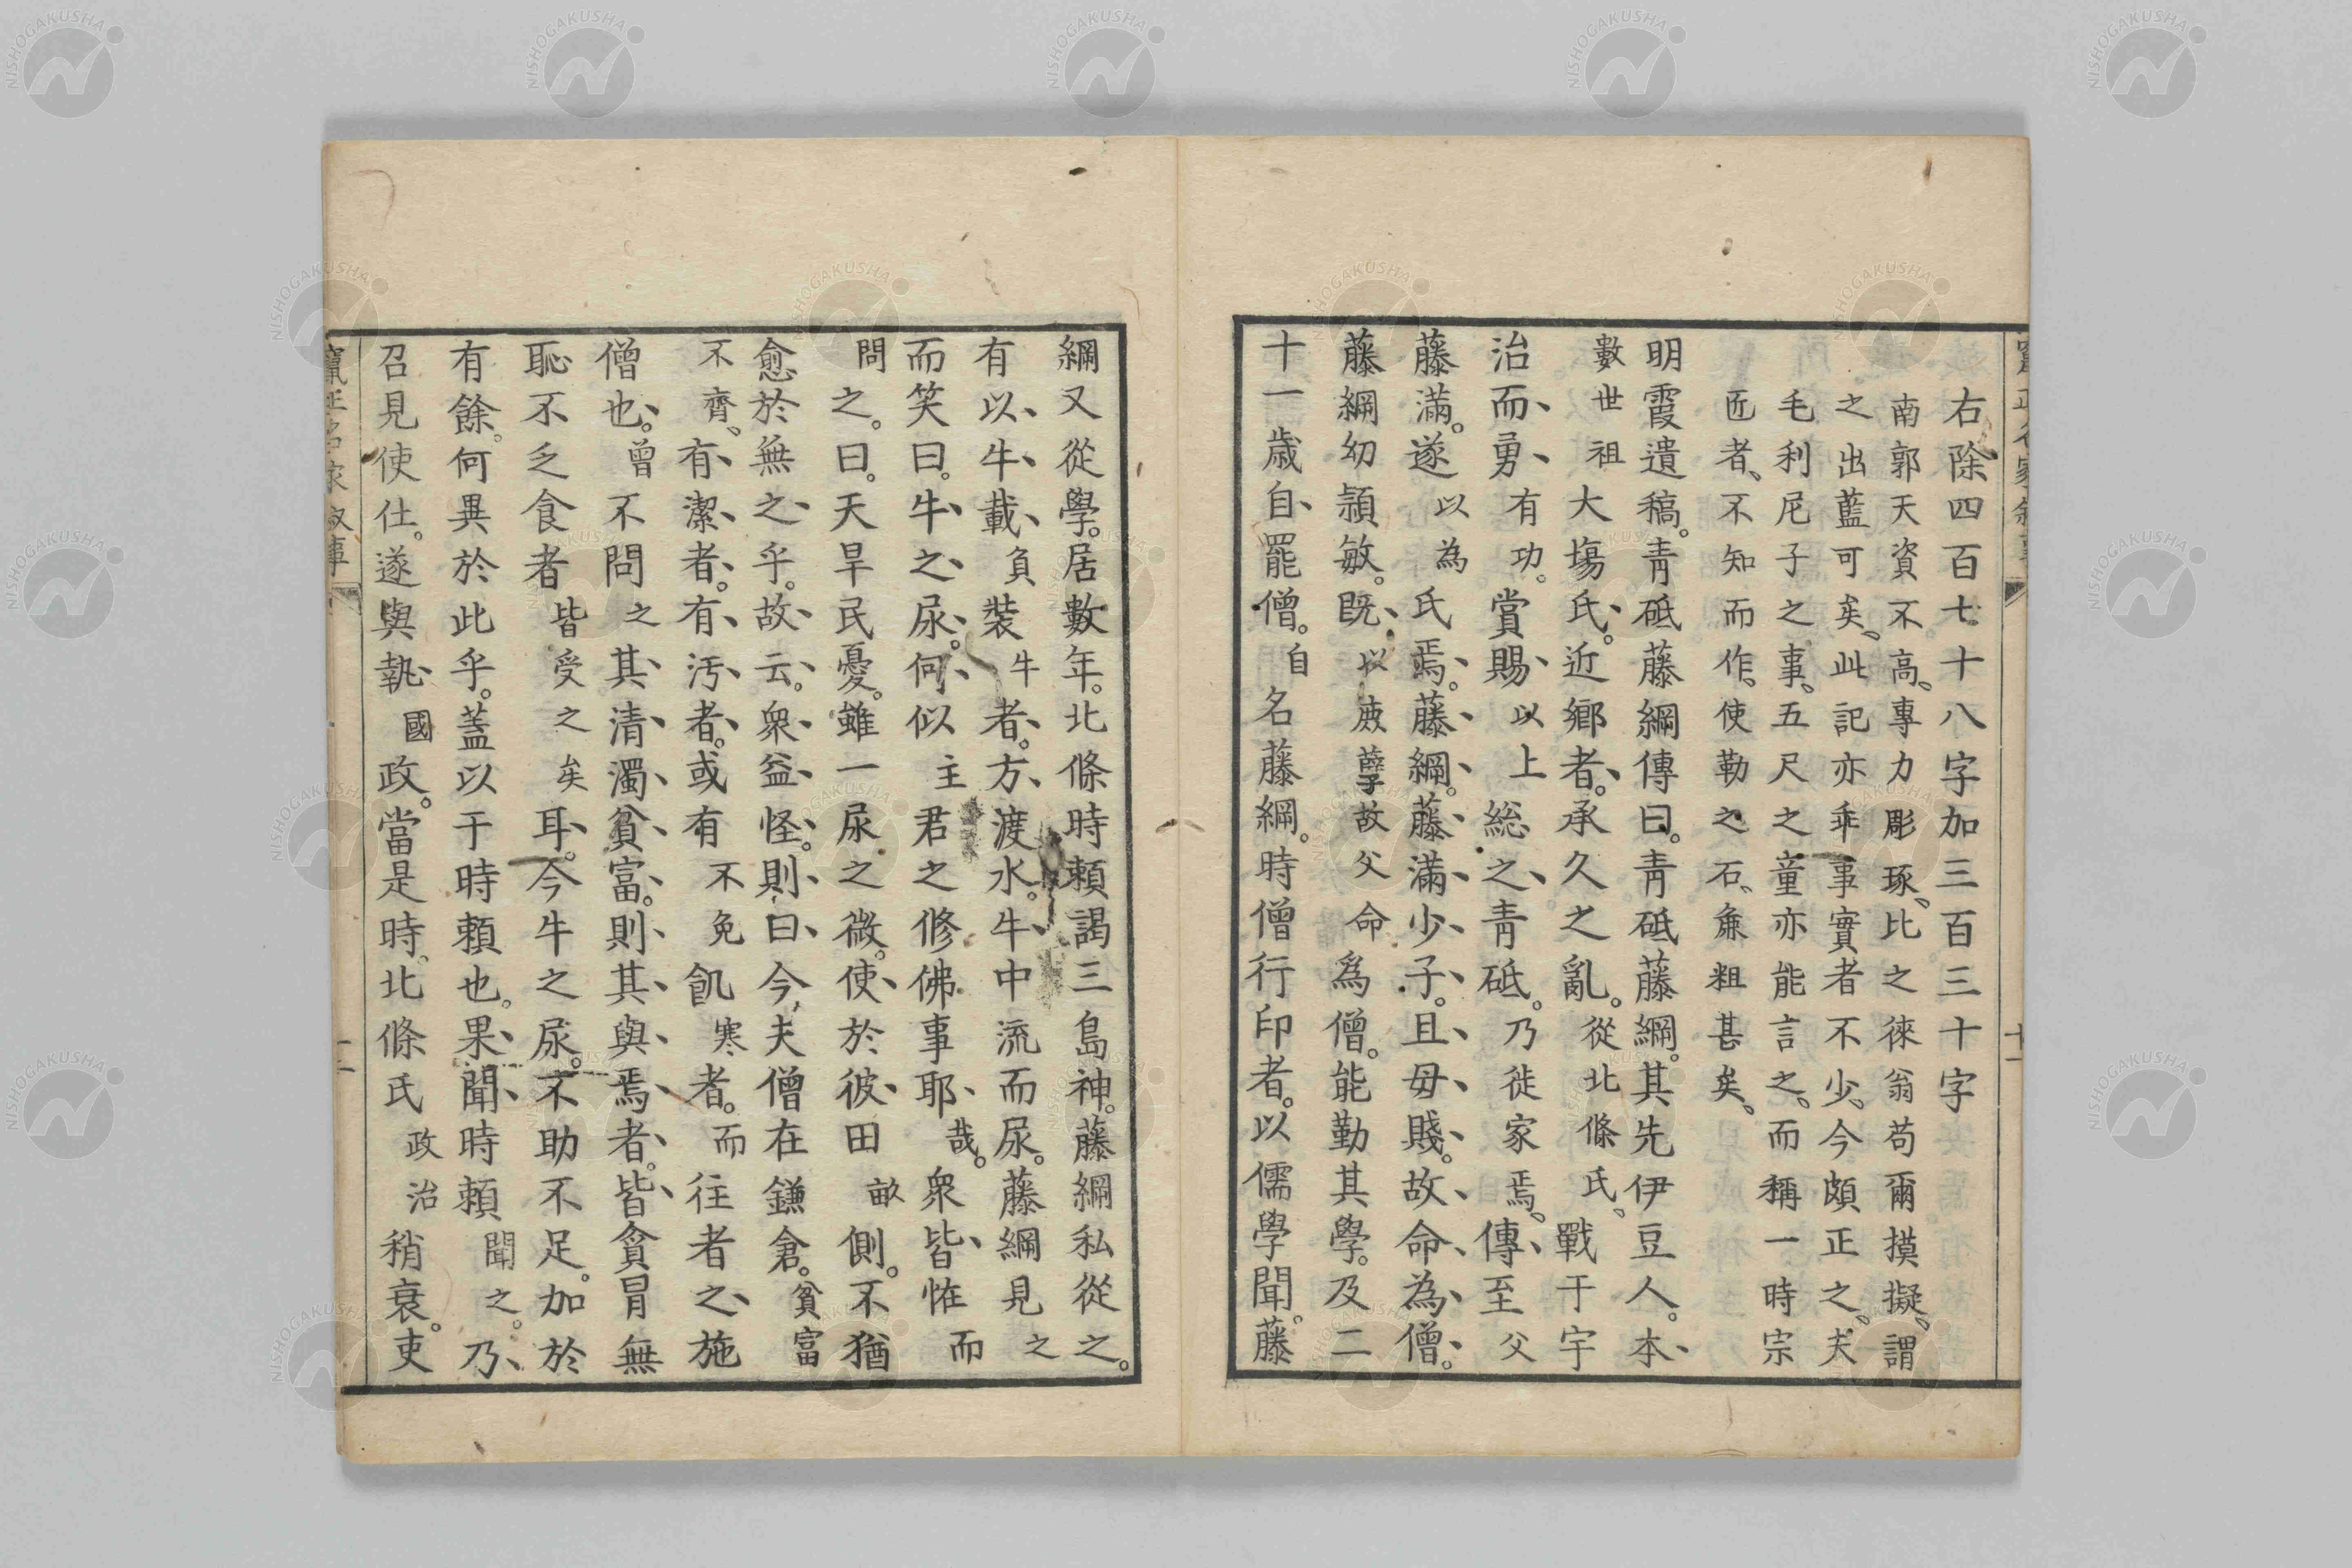 右除四百七十八字加三百三十字
南郭天資不高、專力彫琢、比之徠翁苟爾摸擬、謂
之出藍可矣、此記亦乖事實者不少、今頗正之、夫
毛利尼子之事、五尺之童亦能言之、而稱一時宗
匠者、不知而作、使勒之石、麁粗甚矣、
明霞遺稿。青砥藤綱傳曰。青砥藤綱。其先伊豆人。本、
數世祖大塲氏。近鄉者。承久之亂。從北條氏、戰于宇
治而、勇、有功。賞賜、以上総之、青砥。乃徙家焉、傳、至父
藤滿。遂以為氏焉、藤、綱、藤、滿、少、子。且、母、賤、故、命、為、僧。
藤綱幼頴敏。既、以庻孽子故父命爲僧。能勤其學。及二
十一歲自、罷僧。自名藤綱。時僧行印者。以儒學聞。藤
綱又從學。居數年。北條時賴謁三島神。藤綱私從之。
有以、牛、載、負裝牛者。方、渡水。牛、中流而尿。藤綱見之
而笑曰。牛、之、尿、何、似主君之修佛事耶、哉。衆皆、恠而
問之。曰。天旱民憂。雖一尿之微。使、於彼、田畝側。不猶
愈於無之、乎。故、云。衆、益、怪。則、曰、今夫僧在鎌倉。貧富
不齊、有、潔、者。有、汚、者。或有不免飢寒者。而往者之、施
僧也、曾不問之其、清、濁、貧、富。則、其、與、焉、者、皆、貪冒無
恥不乏食者皆受之矣耳。今牛之尿。不助不足。加於
有餘。何異於此乎。蓋以干時賴也。果、聞、時賴聞之。乃、
召見使仕。遂與執、國政。當是時、北條氏政治稍衰。吏
NISHOGAKUSHA